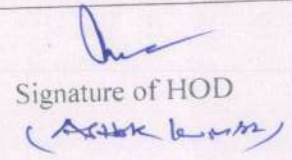 Signature of HOD
(ASHOK KUMAR)